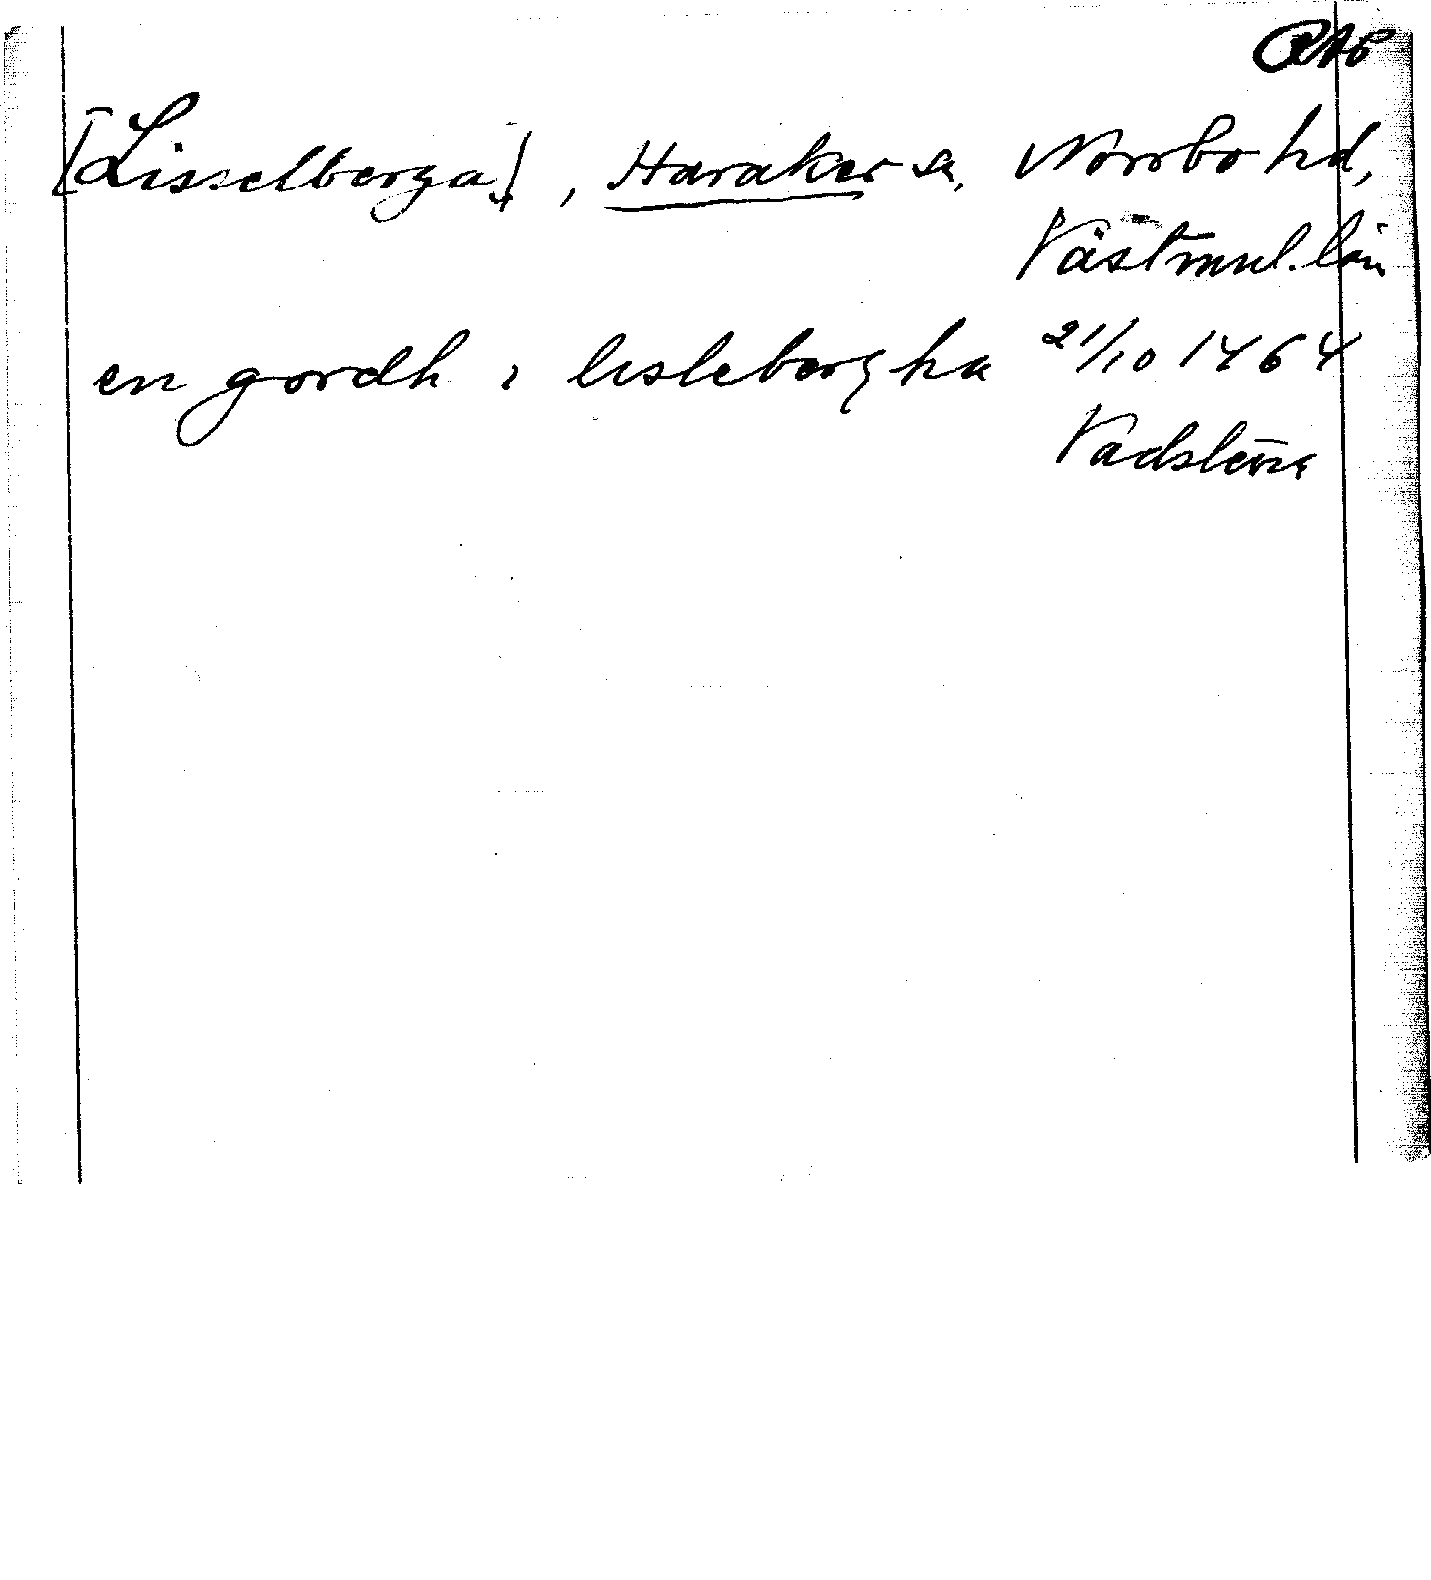 RAP
[Lisselberga], Haraker sn, Norrbo hd,
Västmnl. län
en gordh i lisleberg ha 21/10 1464
Vadstena